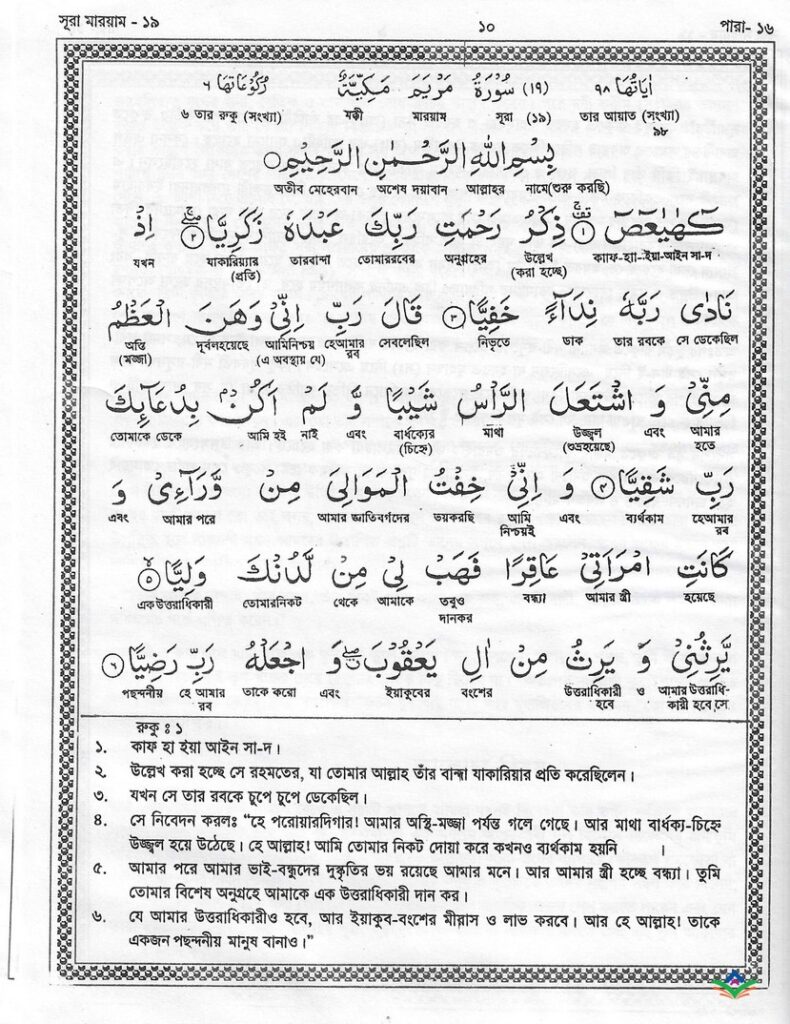 সূরা মারয়াম - ১৯ ১০ পারা- ১৬
اٰيَاتُهَا ٩٨ (١٩) سُوْرَةُ مَرْيَمَ مَكِّيَّةٌ رُكُوْعَاتُهَا ٦
৬ তার রুকু (সংখ্যা) মক্কী মারয়াম সূরা (১৯) তার আয়াত (সংখ্যা)
৯৮
بِسْمِ اللّٰهِ الرَّحْمٰنِ الرَّحِيْمِ
অতীব মেহেরবান অশেষ দয়াবান আল্লাহর নামে(শুরু করছি)
كٓهٰيٰعٓصٓ ۝١ ذِكْرُ رَحْمَتِ رَبِّكَ عَبْدَهٗ زَكَرِيَّا ۝٢ اِذْ
যখন যাকারিয়্যার তারবান্দা তোমাররবের অনুগ্রহের উল্লেখ কাফ-হা-ইয়া-আইন সা-দ
(প্রতি) (করা হচ্ছে)
نَادٰى رَبَّهٗ نِدَآءً خَفِيًّا ۝٣ قَالَ رَبِّ اِنِّيْ وَهَنَ الْعَظْمُ
অস্থি দূর্বলহয়েছে আমিনিশ্চয় হেআমার সেবলেছিল নিভৃতে ডাক তার রবকে সে ডেকেছিল
(মজ্জা) (এ অবস্থায় যে) রব
مِنِّيْ وَ اشْتَعَلَ الرَّاْسُ شَيْبًا وَّ لَمْ اَكُنْۢ بِدُعَآئِكَ
তোমাকে ডেকে আমি হই নাই এবং বার্ধক্যের মাথা উজ্জ্বল এবং আমার
(চিহ্নে) (শুভ্রহয়েছে) হতে
رَبِّ شَقِيًّا ۝٤ وَ اِنِّيْ خِفْتُ الْمَوَالِيَ مِنْ وَّرَآءِيْ وَ
এবং আমার পরে আমার জ্ঞাতিবর্গদের ভয়করছি আমি এবং ব্যর্থকাম হেআমার
নিশ্চয়ই রব
كَانَتِ امْرَاَتِيْ عَاقِرًا فَهَبْ لِيْ مِنْ لَّدُنْكَ وَلِيًّا ۝٥
একউত্তরাধিকারী তোমারনিকট থেকে আমাকে তবুও বন্ধ্যা আমার স্ত্রী হয়েছে
দানকর
يَّرِثُنِيْ وَ يَرِثُ مِنْ اٰلِ يَعْقُوْبَ وَ اجْعَلْهُ رَبِّ رَضِيًّا ۝٦
পছন্দনীয় হে আমার তাকে করো এবং ইয়াকুবের বংশের উত্তরাধিকারী ও আমার উত্তরাধি-
রব হবে কারী হবে সে
রুকু : ১
১. কাফ হা ইয়া আইন সা-দ।
২. উল্লেখ করা হচ্ছে সে রহমতের, যা তোমার আল্লাহ তাঁর বান্দা যাকারিয়ার প্রতি করেছিলেন।
৩. যখন সে তার রবকে চুপে চুপে ডেকেছিল।
৪. সে নিবেদন করলঃ “হে পরোয়ারদিগার! আমার অস্থি-মজ্জা পর্যন্ত গলে গেছে। আর মাথা বার্ধক্য-চিহ্নে
উজ্জ্বল হয়ে উঠেছে। হে আল্লাহ! আমি তোমার নিকট দোয়া করে কখনও ব্যর্থকাম হয়নি ।
৫. আমার পরে আমার ভাই-বন্ধুদের দুষ্কৃতির ভয় রয়েছে আমার মনে। আর আমার স্ত্রী হচ্ছে বন্ধ্যা। তুমি
তোমার বিশেষ অনুগ্রহে আমাকে এক উত্তরাধিকারী দান কর।
৬. যে আমার উত্তরাধিকারীও হবে, আর ইয়াকুব-বংশের মীরাস ও লাভ করবে। আর হে আল্লাহ! তাকে
একজন পছন্দনীয় মানুষ বানাও।”